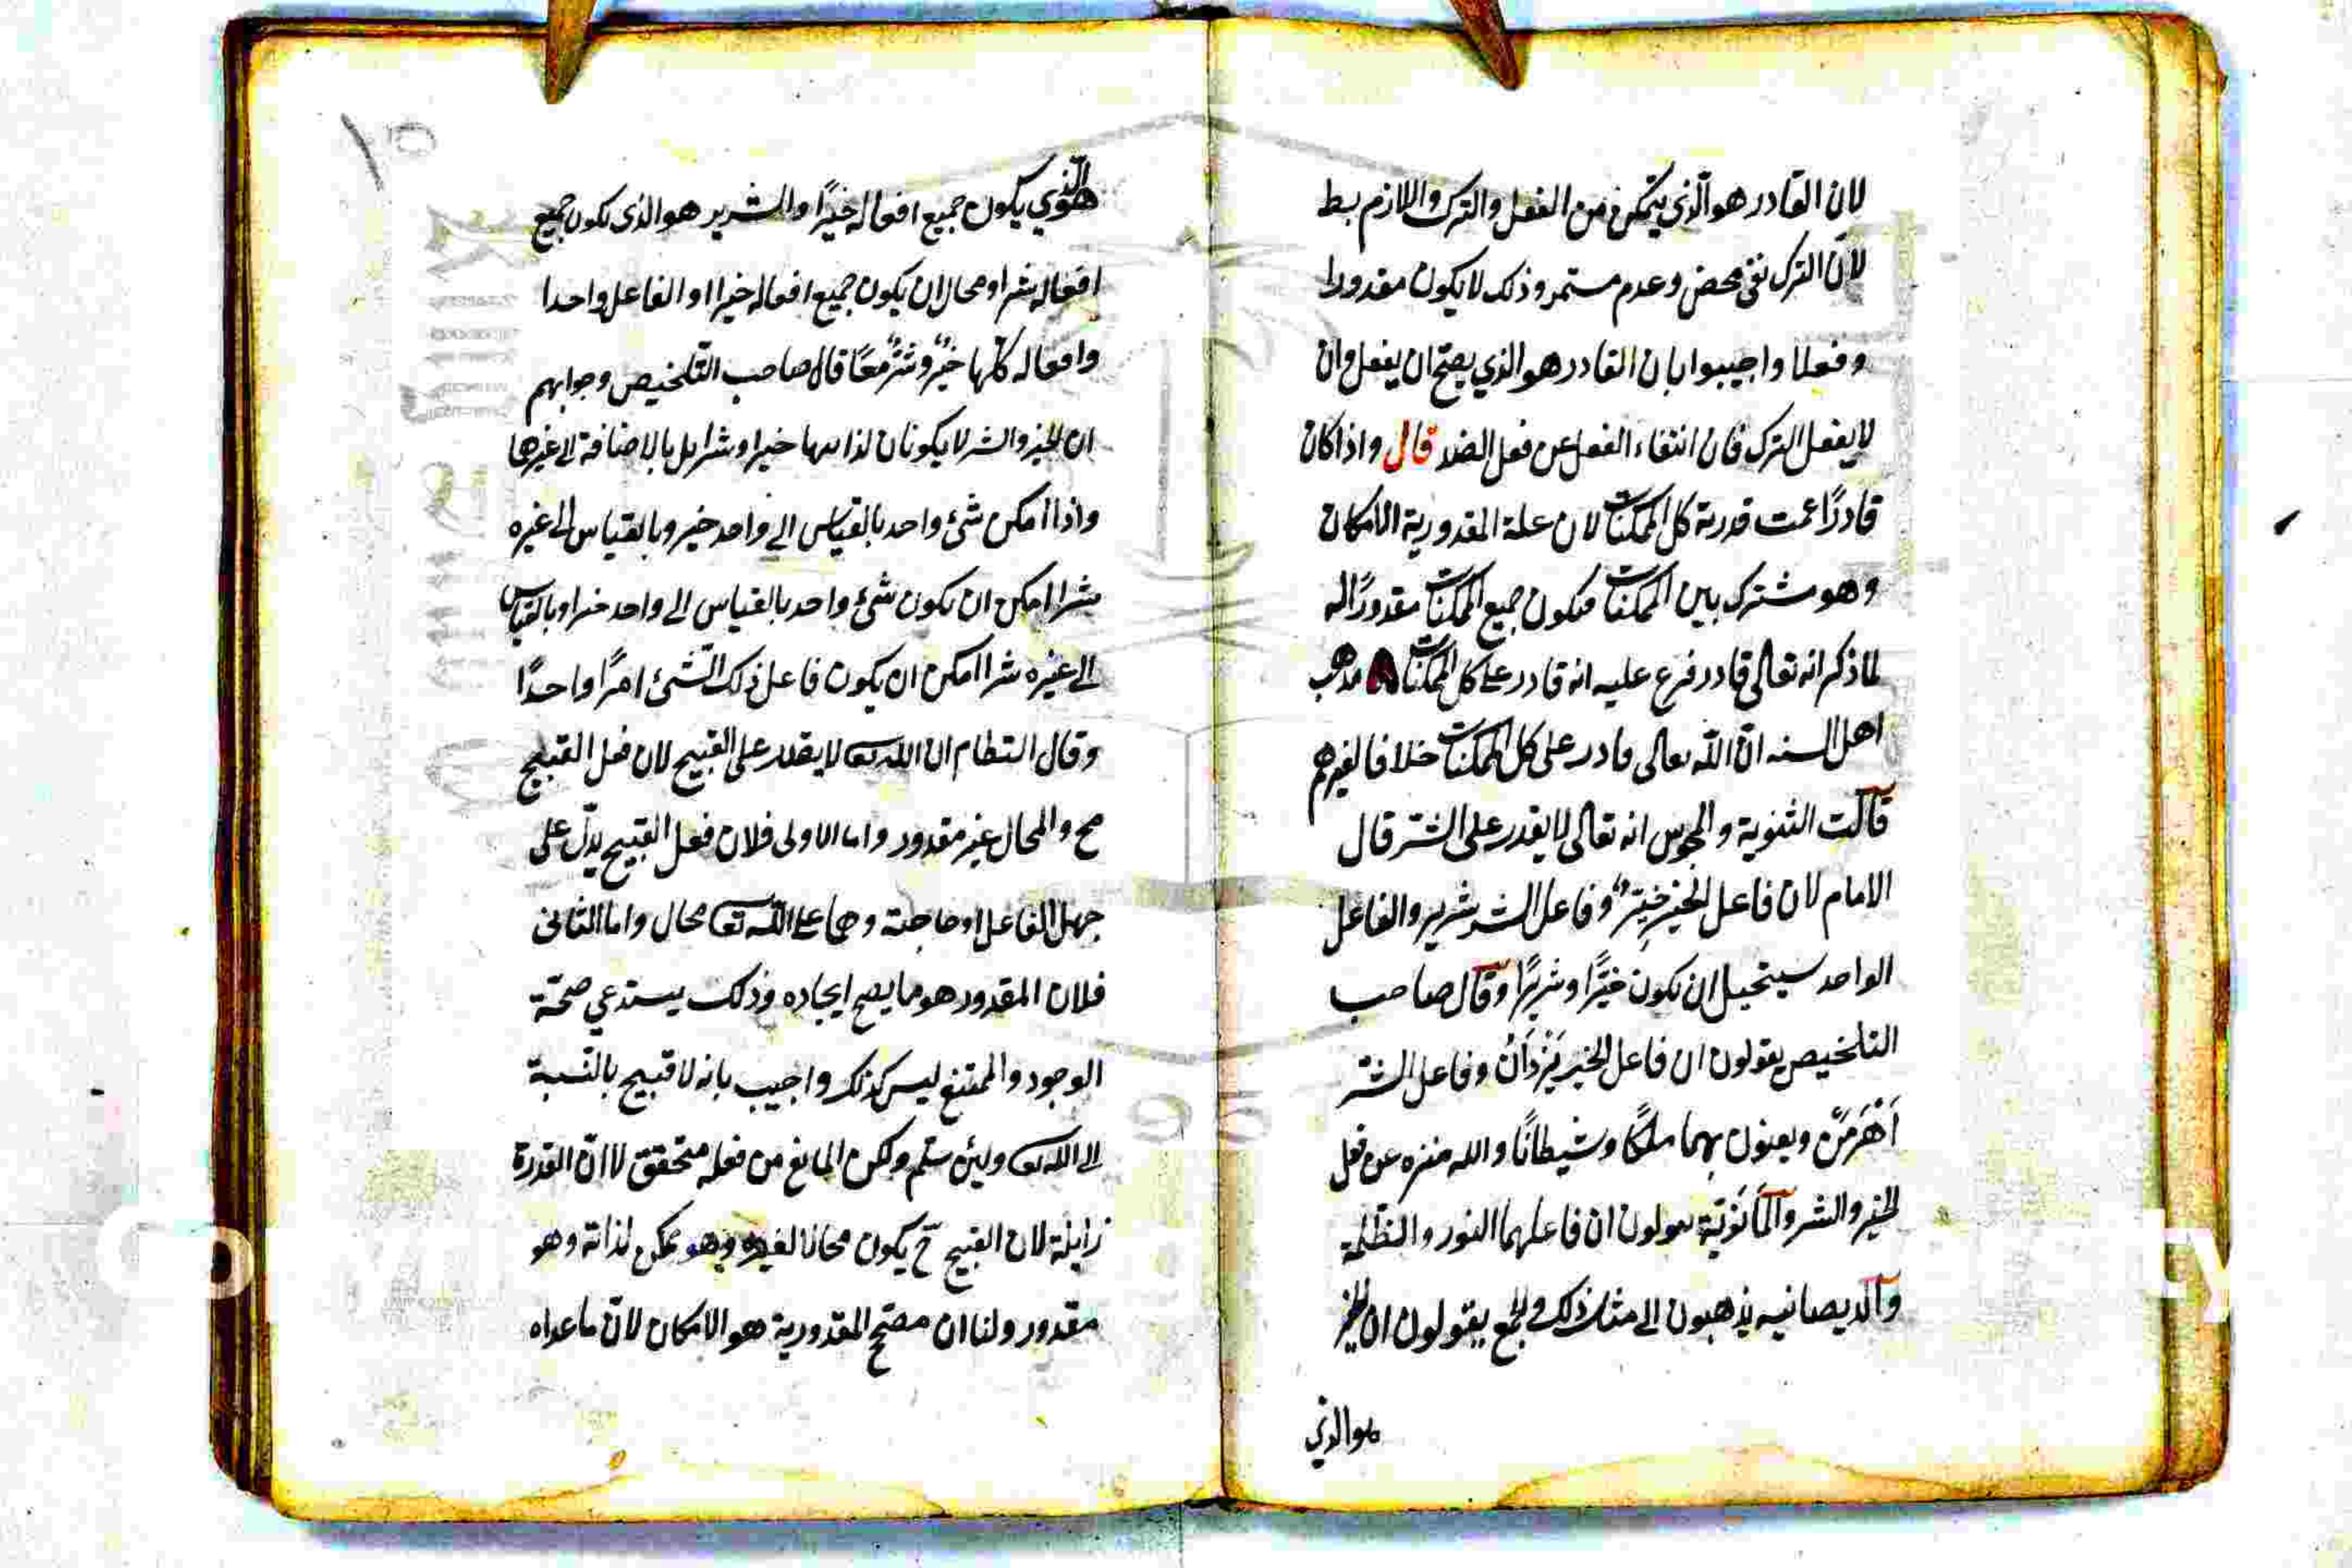 لان القادر هو الذي يتمكن من الفعل والترك واللازم بط
لان الترك نفي محض وعدم مستمر وذلك لا يكون مقدورا
وفعلا واجيبوا بان القادر هو الذي يصح ان يفعل وان
لا يفعل الترك فان انتفاء الفعل عن فعل الضد قال واذا كان
قادرًا عمت قدرته كل الممكنات لان علة المقدورية الامكان
وهو مشترك بين الممكنات فيكون جميع الممكنات مقدورًا له
لما ذكر انه تعالى قادر فرع عليه انه قادر على كل الممكنات مذهب
اهل السنه انّ الله تعالى قادر على كل الممكنات خلافا لغيرهم
قالت الثنوية والمجوس انه تعالى لا يقدر على الشّر قال
الامام لان فاعل الخير خيّر وفاعل الشر شرير والفاعل
الواحد يستحيل ان يكون خيّرًا وشريرًا وقال صاحب
التلخيص يقولون ان فاعل الخير يَزْدَانْ وفاعل الشّر
اَهْرَمَنْ ويعنون بهما ملكًا وشيطانًا والله منزه عن فعل
الخير والشر والمانَوِيّة يقولون ان فاعلهما النور والظلمة
والديصانيه يذهبون الى مثل ذلك والجمع يقولون ان الخير
هو الذي
هو الذي يكون جميع افعاله خيرًا والشرير هو الذي يكون جميع
افعاله شرا ومحال ان يكون جميع افعاله خيرا او الفاعل واحدا
وافعاله كلّها خيرٌ وشرٌ معًا قال صاحب التلخيص وجوابهم
ان الخير والشر لا يكونان لذاتيهما خيرا وشرا بل بالاضافة الى غيرها
واذا امكن شئ واحد بالقياس الى واحد خير وبالقياس الى غيره
شرا امكن ان يكون شئ واحد بالقياس الى واحد خيرا وبالقياس
الى غيره شرا امكن ان يكون فاعل ذلك الشئ امرًا واحدًا
وقال النظام ان الله تع لا يقدر على القبيح لان فعل القبيح
مح والمحال غير مقدور واما الاولى فلان فعل القبيح يدلّ على
جهل الفاعل او حاجته وهما على الله تعا محال واما الثاني
فلان المقدور هو ما يصح ايجاده وذلك يستدعي صحّة
الوجود والممتنع ليس كذلك واجيب بانه لا قبيح بالنسبة
الى الله تع ولئن سلّم ولكن المانع من فعله متحقق لا انّ القدرة
زايلة لان القبيح ح يكون محالا لغيره وهو ممكن لذاته وهو
مقدور ولنا ان مصحّح المقدورية هو الامكان لانّ ما عداه